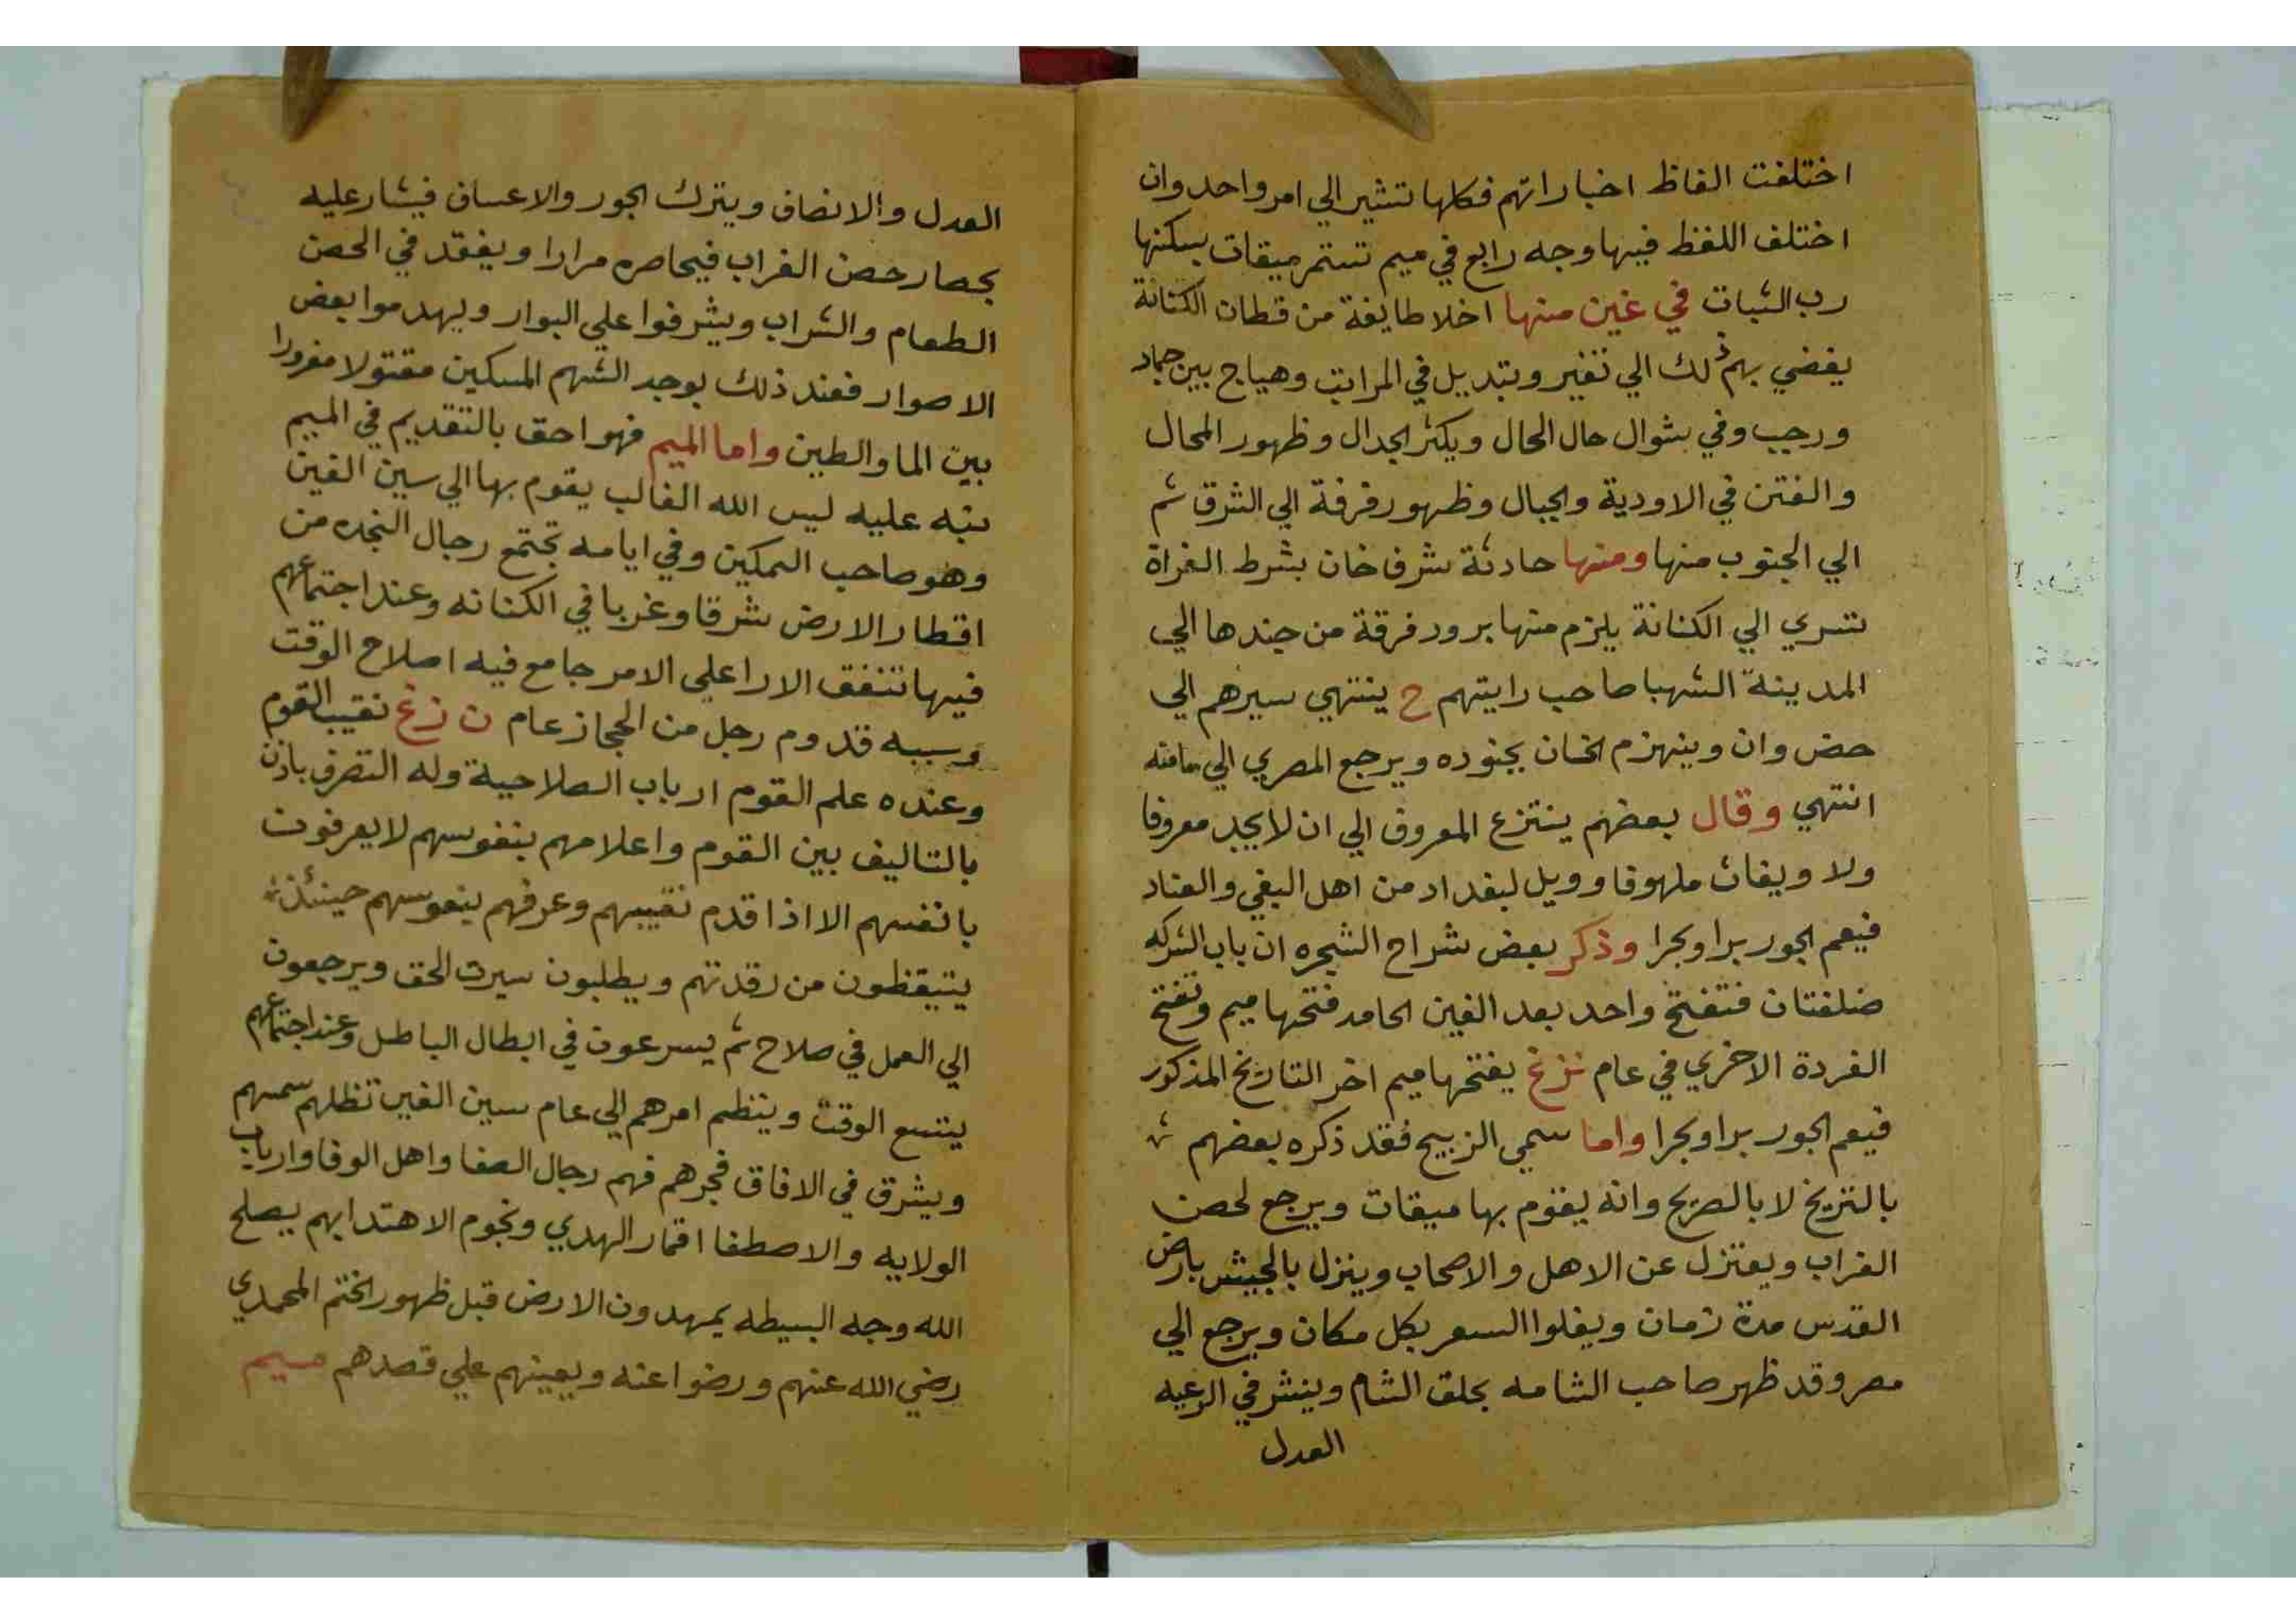 اختلفت الفاظ اخباراتهم فكلها تشير الي امر واحد وان
اختلف اللفظ فيها وجه رابع في ميم تستمر ميقات يسكنها
رب الثبات في غين منها اخلا طايفة من قطان الكنانة
يفضي بهم ذلك الي تغير وتبديل في المراتب وهياج بين جماد
ورجب وفي شوال حال الحال ويكثر الجدال وظهور المحال
والفتن في الاودية والجبال وظهور فرقة الي الشرق ثم
الي الجنوب منها ومنها حادثة شرف خان بشرط الفراة
تسري الي الكنانة يلزم منها برور فرقة من جندها الي
المدينة الشهبا صاحب رايتهم ح ينتهي سيرهم الي
حض وان وينهزم الخان بجنوده ويرجع المصري الي مامنه
انتهي وقال بعضهم ينتزع المعروف الي ان لا يجد معروفا
ولا ويغاث ملهوفا وويل لبغداد من اهل البغي والعناد
فيعم الجور برا وبحرا وذكر بعض شراح الشجره ان باب الشركه
ضلفتان فتفتح واحد بعد الغين الحامد فتحها ميم وتفتح
الفردة الاخري في عام نزغ يفتحها ميم اخر التاريخ المذكور
فيعم الجور برا وبحرا واما سمي الزبيح فقد ذكره بعضهم
بالتزيخ لا بالصريح وانه يقوم بها ميقات ويرجع لحصن
الغراب ويعتزل عن الاهل والاصحاب وينزل بالجيش بارض
القدس مدة زمان ويغلوا السعر بكل مكان ويرجع الي
مصر وقد ظهر صاحب الشامه بجلق الشام وينشر في الرعيه
العدل
العدل والانصاف ويترك الجور والاعساف فيشار عليه
بحصار حصن الغراب فيحاصره مرارا ويفقد في الحصن
الطعام والشراب ويشرفوا علي البوار ويهدموا بعض
الاصوار فعند ذلك يوجد الشهم المسكين مقتولا مغرورا
بين الما والطين واما الميم فهو احق بالتقديم في الميم
نبه عليه ليس الله الغالب يقوم بها الي سين الغين
وهو صاحب التمكين وفي ايامه تجتمع رجال النجده من
اقطار الارض شرقا وغربا في الكنانه وعند اجتماعهم
فيها تتفق الارا علي الامر جامع فيه اصلاح الوقت
وسببه قدوم رجل من الحجاز عام ن زغ نقيب القوم
وعنده علم القوم ارباب الصلاحية وله التصرف باذن
بالتاليف بين القوم واعلامهم بنفوسهم لا يعرفون
بانفسهم الا اذا قدم نقيبهم وعرفهم بنفوسهم حينئذ
يتيقظون من رقدتهم ويطلبون سيرت الحق ويرجعون
الي العمل في صلاح ثم يسرعون في ابطال الباطل وعند اجتماعهم
يتسع الوقت وينظم امرهم الي عام سين الغين تظلهم سمسهم
ويشرق في الافاق فجرهم فهم رجال الصفا واهل الوفا وارباب
الولايه والاصطفا اقمار الهدي ونجوم الاهتدا بهم يصلح
الله وجه البسيطه يمهدون الارض قبل ظهور الختم المحمدي
رضي الله عنهم ورضوا عنه ويعينهم علي قصدهم ميم